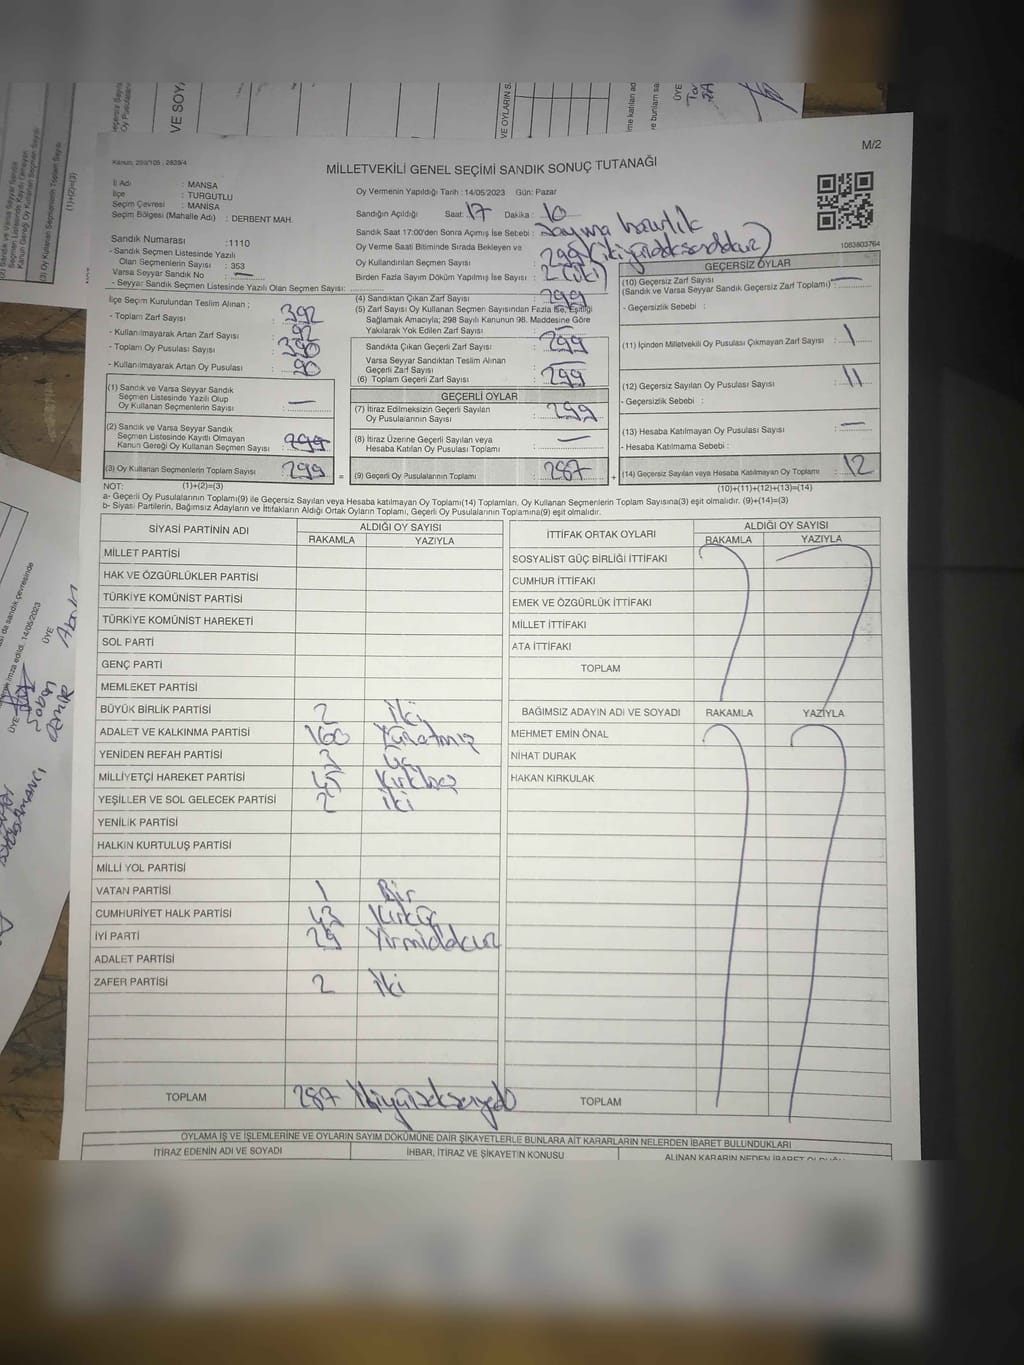 VE SOYA
VE OYLARIN S
ÜYE
M/2
Kanun: 298/105 , 2839/4
MİLLETVEKİLİ GENEL SEÇİMİ SANDIK SONUÇ TUTANAĞI
İl Adı : MANSA
İlçe : TURGUTLU
Seçim Çevresi : MANİSA
Seçim Bölgesi (Mahalle Adı) : DERBENT MAH.
Oy Vermenin Yapıldığı Tarih : 14/05/2023 Gün: Pazar
Sandığın Açıldığı Saat: 17 Dakika : 10
Sandık Saat 17:00'den Sonra Açımış İse Sebebi : Sayıma hazırlık
Oy Verme Saati Bitiminde Sırada Bekleyen ve
Oy Kullandırılan Seçmen Sayısı : 299 (ikiyüzdoksandokuz)
Birden Fazla Sayım Döküm Yapılmış İse Sayısı : 2 (iki)
1083803764
Sandık Numarası : 1110
- Sandık Seçmen Listesinde Yazılı
Olan Seçmenlerin Sayısı : 353
Varsa Seyyar Sandık No : —
- Seyyar Sandık Seçmen Listesinde Yazılı Olan Seçmen Sayısı:
İlçe Seçim Kurulundan Teslim Alınan ;
- Toplam Zarf Sayısı : 392
- Kullanılmayarak Artan Zarf Sayısı :
- Toplam Oy Pusulası Sayısı :
- Kullanılmayarak Artan Oy Pusulası : 90
(1) Sandık ve Varsa Seyyar Sandık
Seçmen Listesinde Yazılı Olup
Oy Kullanan Seçmenlerin Sayısı : —
(2) Sandık ve Varsa Seyyar Sandık
Seçmen Listesinde Kayıtlı Olmayan
Kanun Gereği Oy Kullanan Seçmen Sayısı : 299
(3) Oy Kullanan Seçmenlerin Toplam Sayısı : 299
(1)+(2)=(3)
(4) Sandıktan Çıkan Zarf Sayısı : 299
(5) Zarf Sayısı Oy Kullanan Seçmen Sayısından Fazla İse, Eşitliği
Sağlamak Amacıyla; 298 Sayılı Kanunun 98. Maddesine Göre
Yakılarak Yok Edilen Zarf Sayısı : —
Sandıkta Çıkan Geçerli Zarf Sayısı : 299
Varsa Seyyar Sandıktan Teslim Alınan
Geçerli Zarf Sayısı : —
(6) Toplam Geçerli Zarf Sayısı : 299
GEÇERLİ OYLAR
(7) İtiraz Edilmeksizin Geçerli Sayılan
Oy Pusulalarının Sayısı : 299
(8) İtiraz Üzerine Geçerli Sayılan veya
Hesaba Katılan Oy Pusulası Toplamı : —
= (9) Geçerli Oy Pusulalarının Toplamı : 287 +
GEÇERSİZ OYLAR
(10) Geçersiz Zarf Sayısı
(Sandık ve Varsa Seyyar Sandık Geçersiz Zarf Toplamı) : —
- Geçersizlik Sebebi :
(11) İçinden Milletvekili Oy Pusulası Çıkmayan Zarf Sayısı : 1
(12) Geçersiz Sayılan Oy Pusulası Sayısı : 11
- Geçersizlik Sebebi :
(13) Hesaba Katılmayan Oy Pusulası Sayısı : —
- Hesaba Katılmama Sebebi :
(14) Geçersiz Sayılan veya Hesaba Katılmayan Oy Toplamı : 12
(10)+(11)+(12)+(13)=(14)
NOT:
a- Geçerli Oy Pusulalarının Toplamı(9) ile Geçersiz Sayılan veya Hesaba katılmayan Oy Toplamı(14) Toplamları, Oy Kullanan Seçmenlerin Toplam Sayısına(3) eşit olmalıdır. (9)+(14)=(3)
b- Siyasi Partilerin, Bağımsız Adayların ve İttifakların Aldığı Ortak Oyların Toplamı, Geçerli Oy Pusulalarının Toplamına(9) eşit olmalıdır.
SİYASİ PARTİNİN ADI ALDIĞI OY SAYISI
RAKAMLA YAZIYLA
MİLLET PARTİSİ
HAK VE ÖZGÜRLÜKLER PARTİSİ
TÜRKİYE KOMÜNİST PARTİSİ
TÜRKİYE KOMÜNİST HAREKETİ
SOL PARTİ
GENÇ PARTİ
MEMLEKET PARTİSİ
BÜYÜK BİRLİK PARTİSİ 2 İki
ADALET VE KALKINMA PARTİSİ 160 Yüzatmış
YENİDEN REFAH PARTİSİ 3 Üç
MİLLİYETÇİ HAREKET PARTİSİ 45 Kırkbeş
YEŞİLLER VE SOL GELECEK PARTİSİ 2 İki
YENİLİK PARTİSİ
HALKIN KURTULUŞ PARTİSİ
MİLLİ YOL PARTİSİ
VATAN PARTİSİ 1 Bir
CUMHURİYET HALK PARTİSİ 43 Kırküç
İYİ PARTİ 29 Yirmidokuz
ADALET PARTİSİ
ZAFER PARTİSİ 2 İki
TOPLAM 287 İkiyüzseksenyedi
İTTİFAK ORTAK OYLARI ALDIĞI OY SAYISI
RAKAMLA YAZIYLA
SOSYALİST GÜÇ BİRLİĞİ İTTİFAKI
CUMHUR İTTİFAKI
EMEK VE ÖZGÜRLÜK İTTİFAKI
MİLLET İTTİFAKI
ATA İTTİFAKI
TOPLAM
BAĞIMSIZ ADAYIN ADI VE SOYADI RAKAMLA YAZIYLA
MEHMET EMİN ÖNAL
NİHAT DURAK
HAKAN KIRKULAK
TOPLAM
OYLAMA İŞ VE İŞLEMLERİNE VE OYLARIN SAYIM DÖKÜMÜNE DAİR ŞİKAYETLERLE BUNLARA AİT KARARLARIN NELERDEN İBARET BULUNDUKLARI
İTİRAZ EDENİN ADI VE SOYADI İHBAR, İTİRAZ VE ŞİKAYETİN KONUSU ALINAN KARARIN NEDEN İBARET OLDUĞU